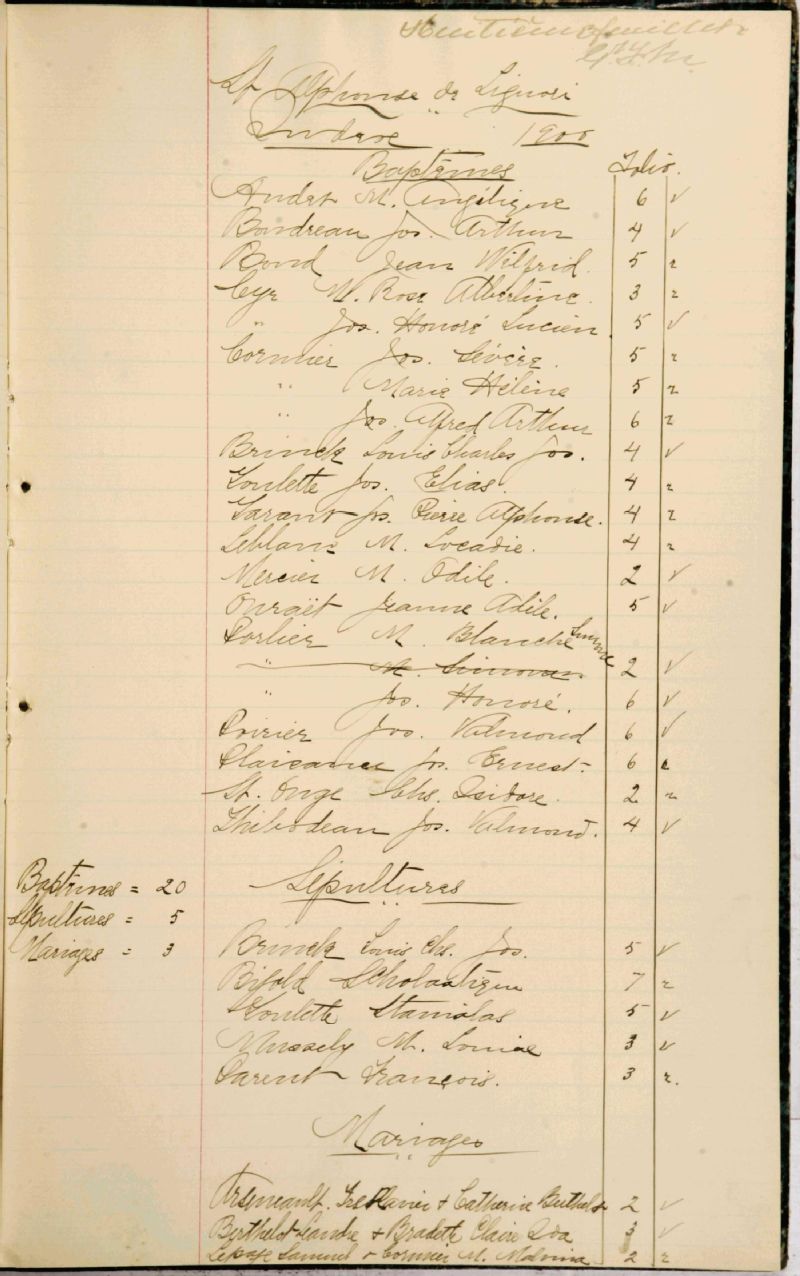 Huitième feuillet
St Alphonse de Liguori
Index 1900
Baptêmes Folio.
Audet M. Angélique 6 v
Boudreau Jos. Arthur 4 v
Bond Jean Wilfrid. 5 r
Cyr M. Rose Albertine. 3 r
" Jos. Honoré Lucien 5 v
Cormier Jos. Sévère. 5 r
" Marie Hélène 5 r
" Jos. Alfred Arthur 6 r
Brinck Louis Charles Jos. 4 v
Goulette Jos. Elias. 4 r
Garant Jos. Pierre Alphonse. 4 r
Leblanc M. Locadie. 4 r
Mercier M. Odile. 2 v
Onraët Jeanne Adile. 5 v
Porlier M. Blanche Simone
" M. Simone 2 v
" Jos. Honoré. 6 v
Poirier Jos. Valmond 6 v
Jos. Ernest. 6 r
St. Onge Chs. Isidore. 2 r
Thibodeau Jos. Valmond. 4 v
Sépultures
Baptêmes = 20
Sépultures = 5
Mariages = 3
Brinck Louis Chs. Jos. 5 v
Scholastique 7 r
Goulette Stanislas 5 v
M. Louise 3 v
Parent François. 3 r.
Mariages
Arseneault & Catherine Berthelot 2 v
Berthelot & Bradette Claire Ida 3 v
Lepage Samuel & Cormier M. Malvina 2 r